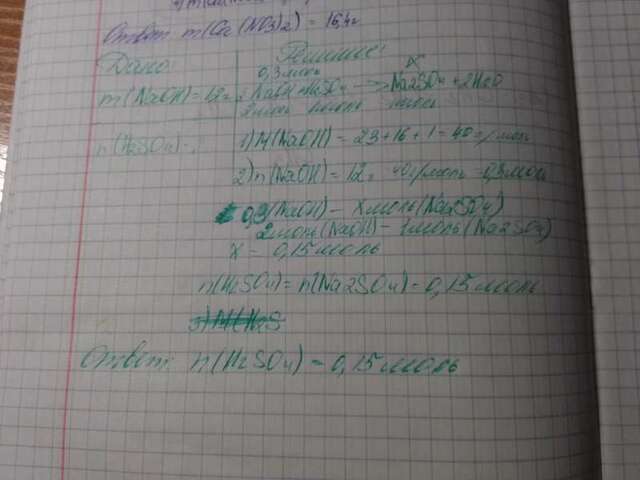 Ответ m(Ca(NO3)2) = 16,4г
Дано:
Решение:
0,3 моль
X
m(NaOH) = 12г
2NaOH + H2SO4 → Na2SO4 + 2H2O
2моль 1моль 1моль
n(H2SO4) - ?
1) M(NaOH) = 23 + 16 + 1 = 40 г/моль
2) n(NaOH) = 12г 40г/моль = 0,3моль
0,3(NaOH) - Xмоль(Na2SO4)
2моль(NaOH) - 1моль(Na2SO4)
X = 0,15моль
n(H2SO4) = n(Na2SO4) = 0,15моль
Ответ: n(H2SO4) = 0,15моль